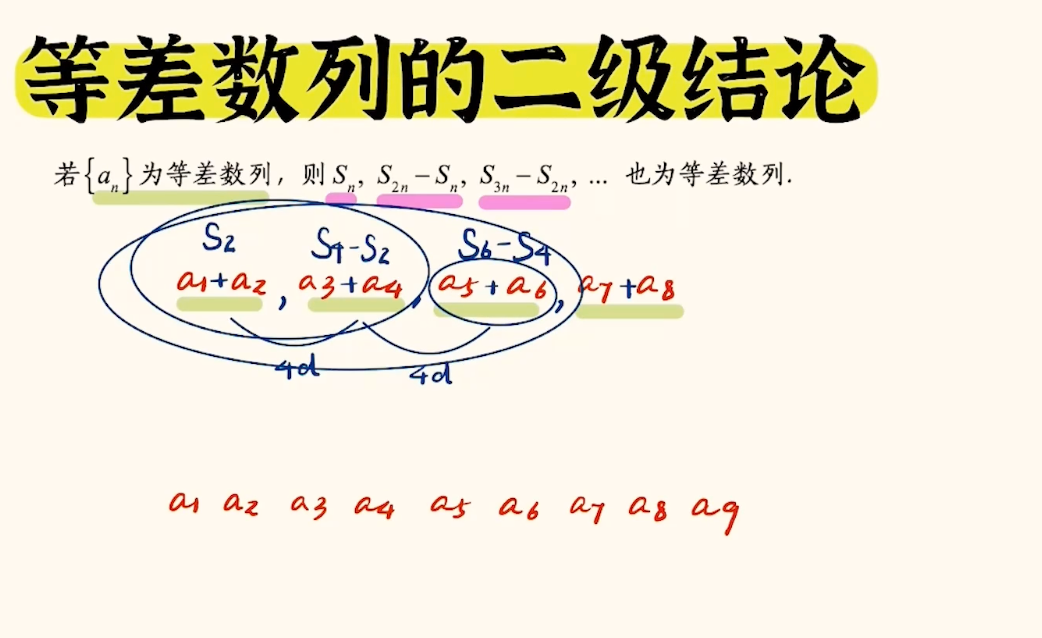 等差数列的二级结论
若{aₙ}为等差数列，则 Sₙ, S₂ₙ－Sₙ, S₃ₙ－S₂ₙ, … 也为等差数列.
S₂ S₄-S₂ S₆-S₄
a₁+a₂ , a₃+a₄ , a₅+a₆ , a₇+a₈
4d 4d
a₁ a₂ a₃ a₄ a₅ a₆ a₇ a₈ a₉